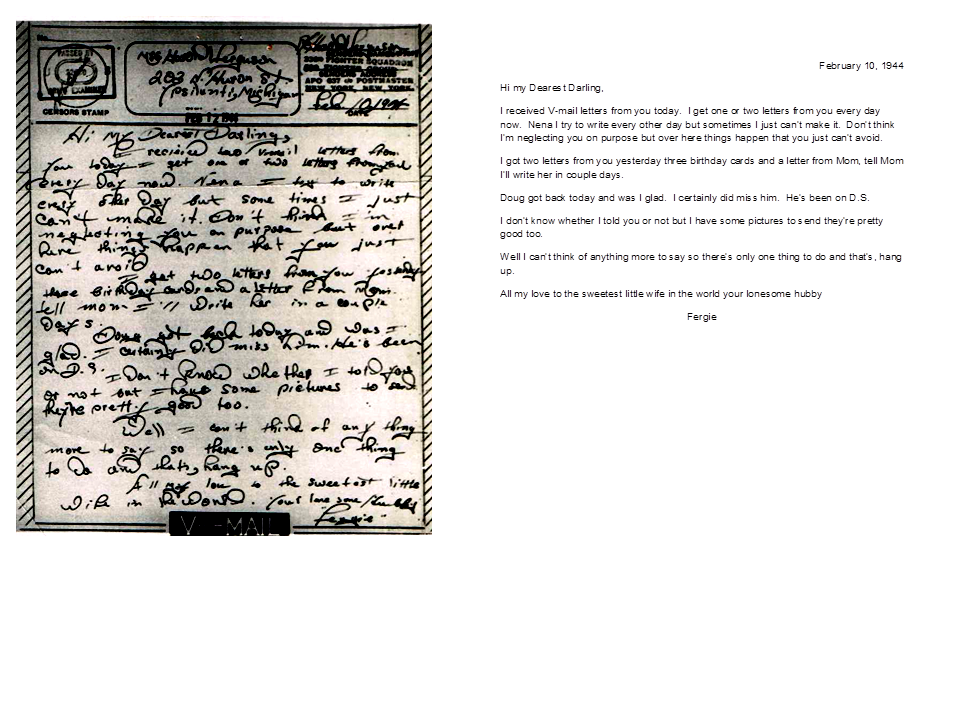 No.
PASSED BY
CENSORS STAMP
Mrs Ferguson
203 N. Huron St.
Ypsilanti, Michigan
FIGHTER SQUADRON
SENDERS ADDRESS
APO 637 c/o POSTMASTER
NEW YORK, NEW YORK
Feb 10, 1944
DATE
FEB 12 1944
Hi My Dearest Darling,
I received two V-mail letters from
you today. I get one or two letters from you
every day now. Nena I try to write
every other day but some times I just
can't make it. Don't think I'm
neglecting you on purpose but over
here things happen that you just
can't avoid
I got two letters from you yesterday
three birthday cards and a letter from Mom.
tell mom I'll write her in a couple
Days.
Doug got back today and was I
glad. I certainly did miss him. He's been
on D.S.
I Don't know whether I told you
or not but I have some pictures to send
they're pretty good too.
Well I can't think of any thing
more to say so there's only one thing
to do and thats, hang up.
All my love to the sweetest little
wife in the world. Your lonesome Hubby
"Fergie"
V-MAIL
February 10, 1944
Hi my Dearest Darling,
I received V-mail letters from you today. I get one or two letters from you every day
now. Nena I try to write every other day but sometimes I just can't make it. Don't think
I'm neglecting you on purpose but over here things happen that you just can't avoid.
I got two letters from you yesterday three birthday cards and a letter from Mom, tell Mom
I'll write her in couple days.
Doug got back today and was I glad. I certainly did miss him. He's been on D.S.
I don't know whether I told you or not but I have some pictures to send they're pretty
good too.
Well I can't think of anything more to say so there's only one thing to do and that's, hang
up.
All my love to the sweetest little wife in the world your lonesome hubby
Fergie